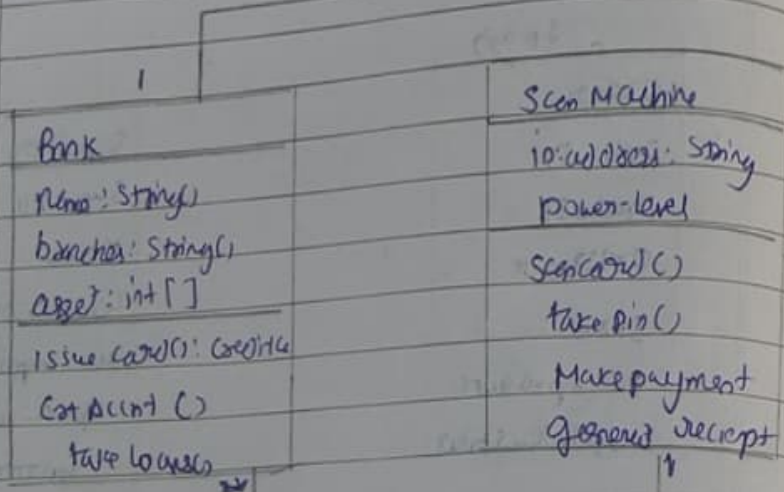 1
Bank
name: String()
branches: String()
asset: int []
Issue card():
Get Accnt ()
take loans()
Scan Machine
ip: address: String
power-level
Scan card ()
take pin()
Make payment
reciept
1